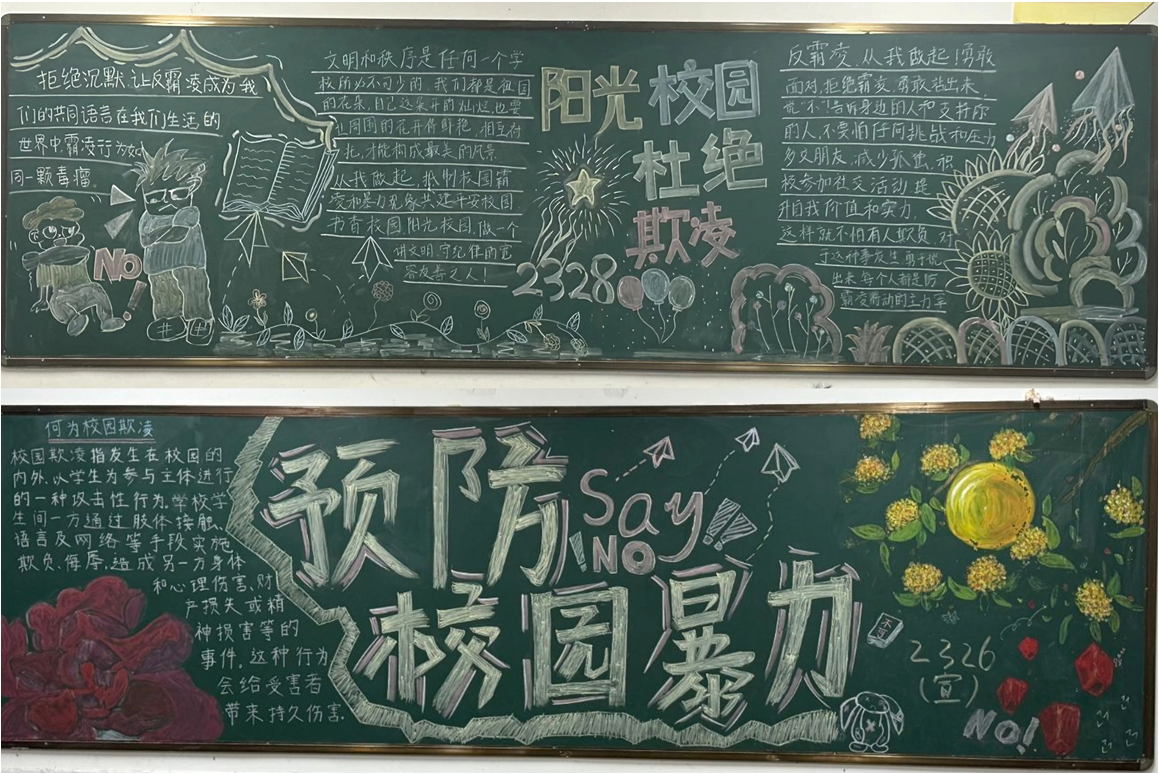 拒绝沉默,让反霸凌成为我
们的共同语言在我们生活的
世界中霸凌行为如
同一颗毒瘤
NO!
文明和秩序是任何一个学
校所必不可少的,我们都是祖国
的花朵,自己这朵开的灿烂,也要
让周围的花开得鲜艳,相互衬
托,才能构成最美的风景
从我做起,抵制校园霸
凌和暴力现象共建平安校园
书香校园,阳光校园,做一个
讲文明,守纪律的宽
容友善之人!
阳光校园
杜绝
欺凌
2328
反霸凌,从我做起!勇敢
面对,拒绝霸凌,勇敢站出来,
说"不"告诉身边的人和支持你
的人,不要怕任何挑战和压力
多交朋友,减少孤独,积
极参加社交活动提
升自我价值和实力,
这样就不怕有人欺负,对
于这种事发生勇于说
出来,每个人都是防
霸凌行动的主力军
何为校园欺凌
校园欺凌指发生在校园的
内外,以学生为参与主体进行
的一种攻击性行为,学校学
生间一方通过肢体接触、
语言及网络等手段实施
欺负、侮辱,造成另一方身体
和心理伤害、财
产损失或精
神损害等的
事件,这种行为
会给受害者
带来持久伤害.
预防
Say
NO
!!!
校园暴力
2326
(宣)
NO!